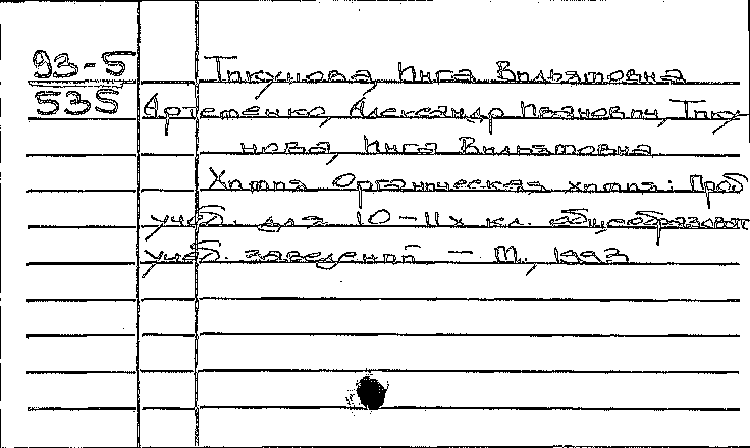 93-5
535
Тикунова, Инга Вильямовна
Артеменко, Александр Иванович, Тику-
нова, Инга Вильямовна
Химия. Органическая химия: Проб
учеб. для 10-11х кл. общеобразоват
учеб. заведений - М., 1993